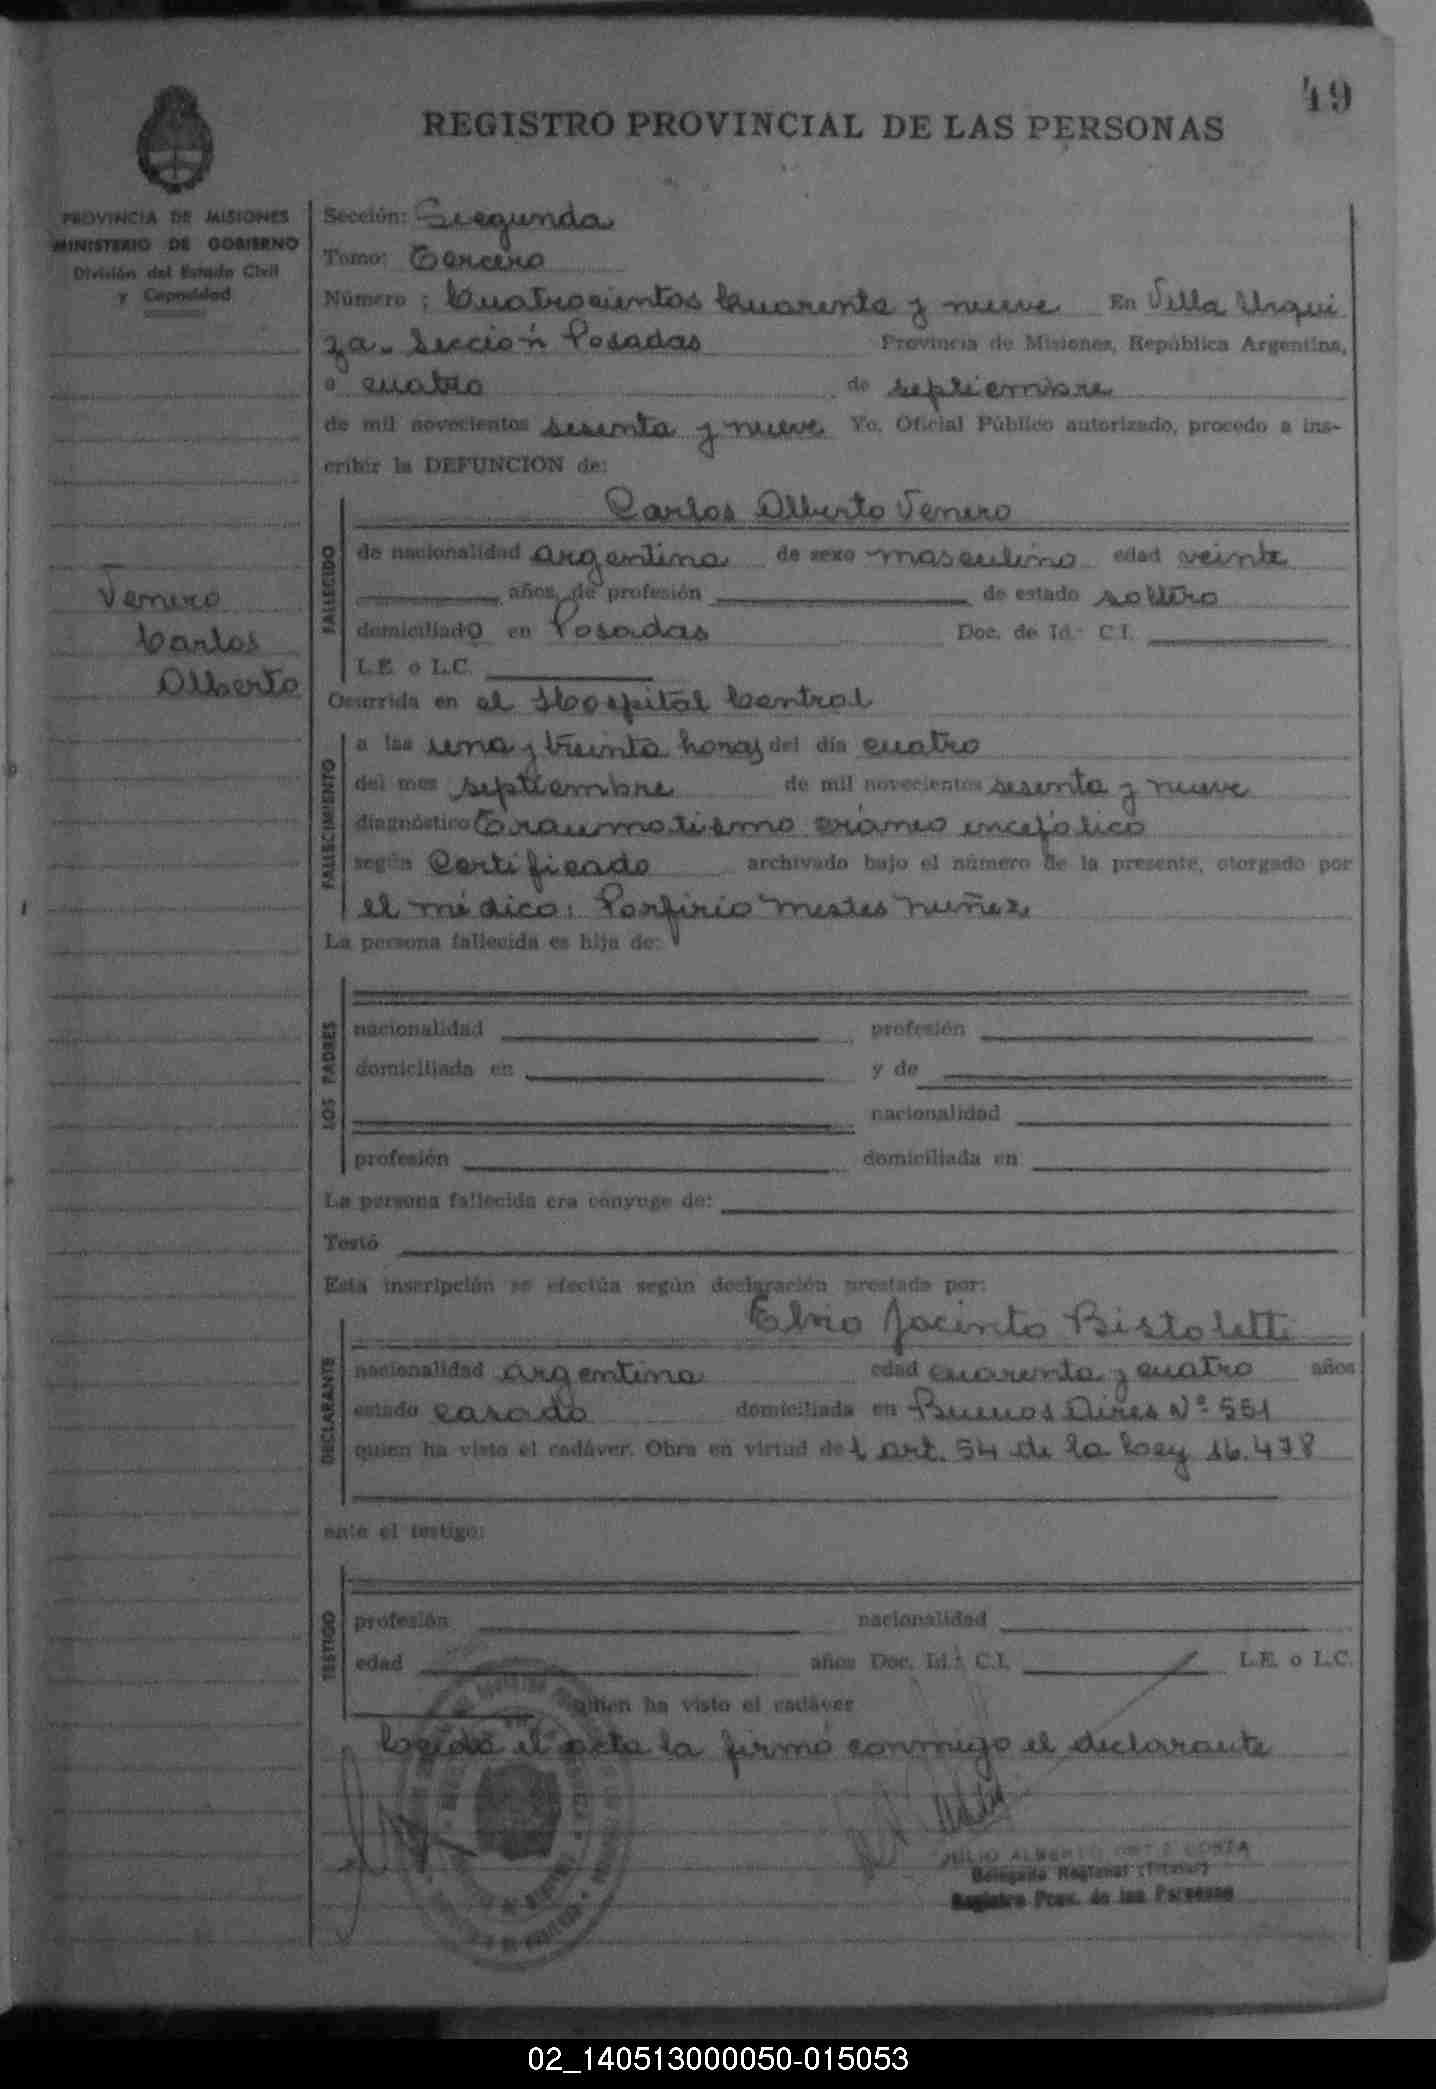 49
REGISTRO PROVINCIAL DE LAS PERSONAS
PROVINCIA DE MISIONES
MINISTERIO DE GOBIERNO
División del Estado Civil
y Capacidad
Venero
Carlos
Alberto
Sección: Segunda
Tomo: Tercero
Número: Cuatrocientos Cuarenta y nueve En Villa Urqui
za. Sección Posadas Provincia de Misiones, República Argentina,
a cuatro de septiembre
de mil novecientos sesenta y nueve Yo, Oficial Público autorizado, procedo a ins-
cribir la DEFUNCION de:
Carlos Alberto Venero
FALLECIDO
de nacionalidad argentina de sexo masculino edad veinte
años, de profesión de estado soltero
domiciliado en Posadas Doc. de Id.- C.I.
L.E. o L.C.
Ocurrida en el Hospital Central
FALLECIMIENTO
a las una y treinta horas del día cuatro
del mes septiembre de mil novecientos sesenta y nueve
diagnóstico Traumatismo cráneo encefálico
según Certificado archivado bajo el número de la presente, otorgado por
el médico: Porfirio Mestes Nuñez
La persona fallecida es hija de:
LOS PADRES
nacionalidad profesión
domiciliada en y de
nacionalidad
profesión domiciliada en
La persona fallecida era cónyuge de:
Testó
Esta inscripción se efectúa según declaración prestada por:
Elvio Jacinto Bistoletti
DECLARANTE
nacionalidad argentina edad cuarenta y cuatro años
estado casado domiciliada en Buenos Aires Nº 551
quien ha visto el cadáver. Obra en virtud del art. 54 de la Ley 16.478
ante el testigo:
TESTIGO
profesión nacionalidad
edad años Doc. Id.: C.I. L.E. o L.C.
quien ha visto el cadáver
Leída el acta la firmó conmigo el declarante
JULIO ALBERTO COSTA
Delegado Regional (Titular)
Registro Prov. de las Personas
02_140513000050-015053